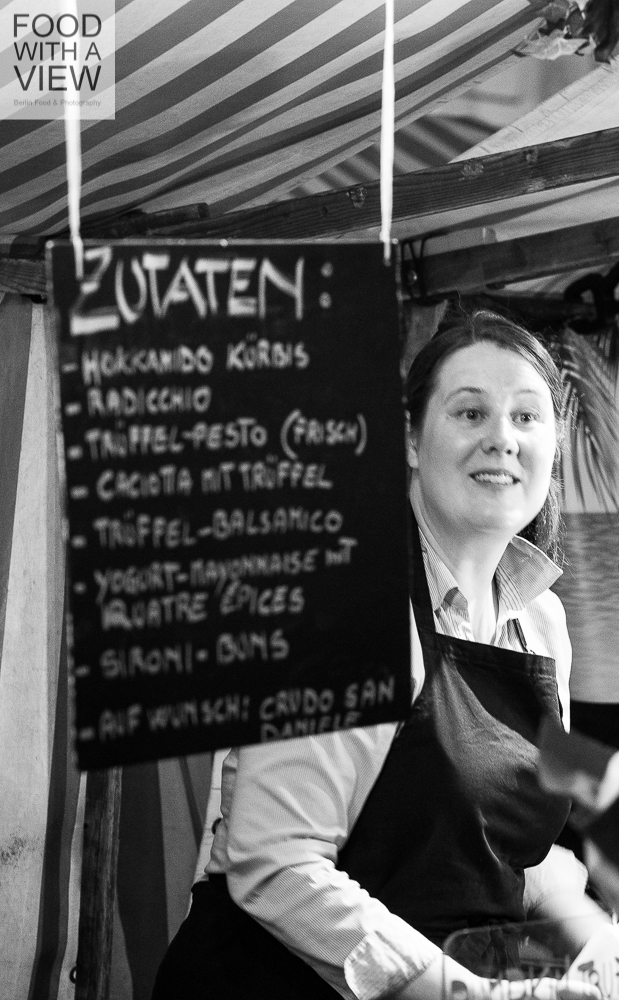 FOOD
WITH A
VIEW
Berlin Food & Photography
ZUTATEN:
- HOKKAIDO KÜRBIS
- RADICCHIO
- TRÜFFEL-PESTO (FRISCH)
- CACIOTA MIT TRÜFFEL
- TRÜFFEL-BALSAMICO
- YOGURT-MAYONNAISE MIT
QUATRE ÉPICES
- SIRONI-BUNS
- AUF WUNSCH: CRUDO SAN
DANIELE